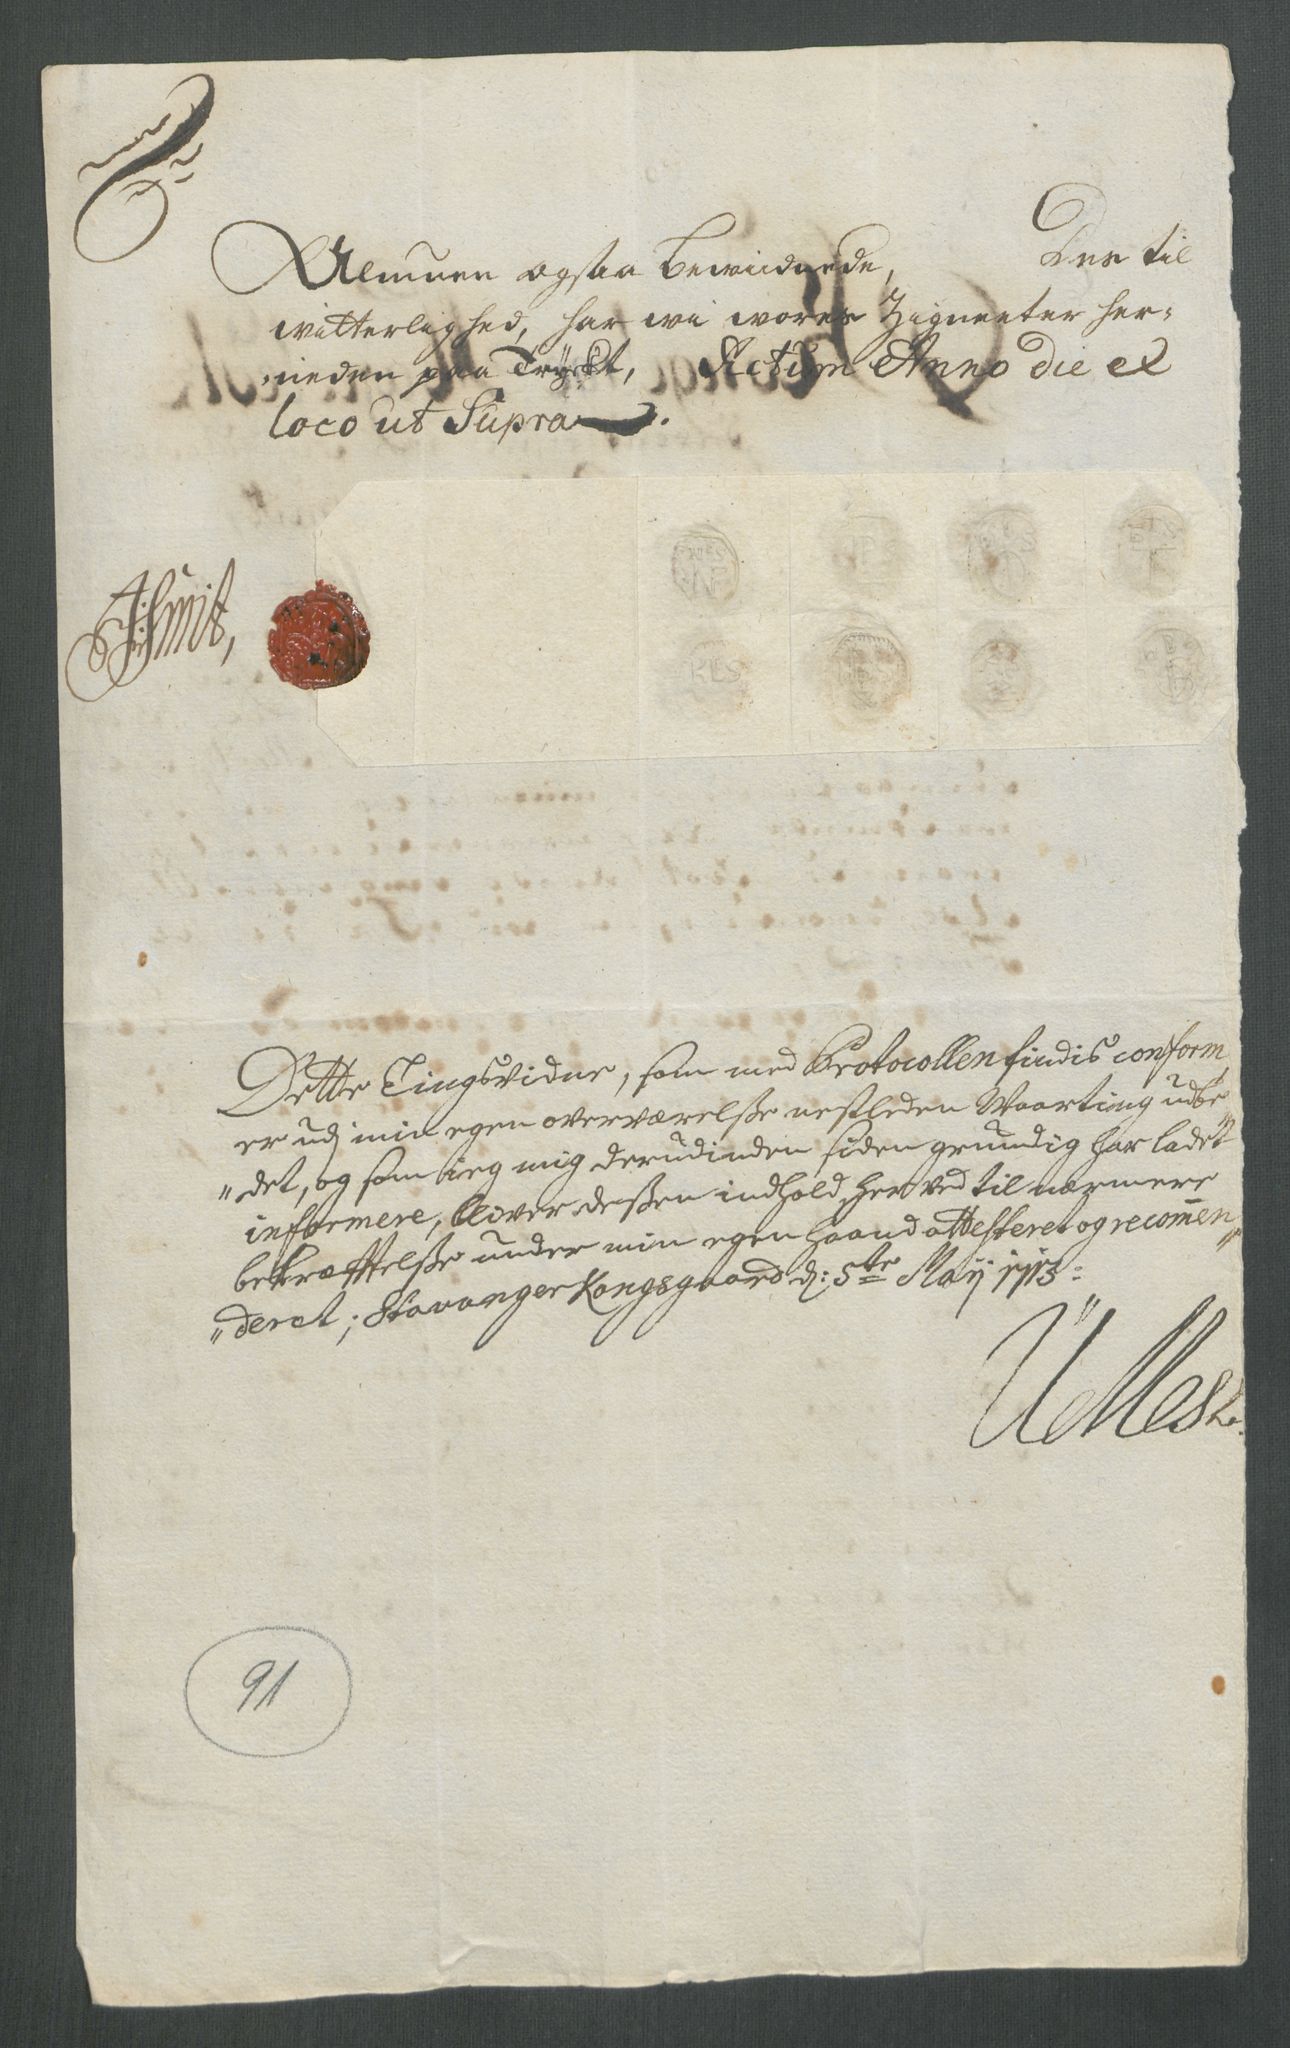 Almuen ogsaa bewiidnede, Des til
witterlighed, har wi wores Zigneeter her-
neden paa Tryckt, Actum Anno die et
loco ut Supra.
NF
IPS
KLS
Smit,
Dette Tingsvidne, som med Protocollen findis conform,
er udj min egen overværelsse nestleden Waarting udste
"det, og som ieg mig derudinden siden grundig har ladet
informere, bliver dessen indhold herved til nærmere
bekræfftelsse under min egen haand attesteret og recom̅en
"deret; Stavanger Kongsgaard d: 5te Maij 1713:
91